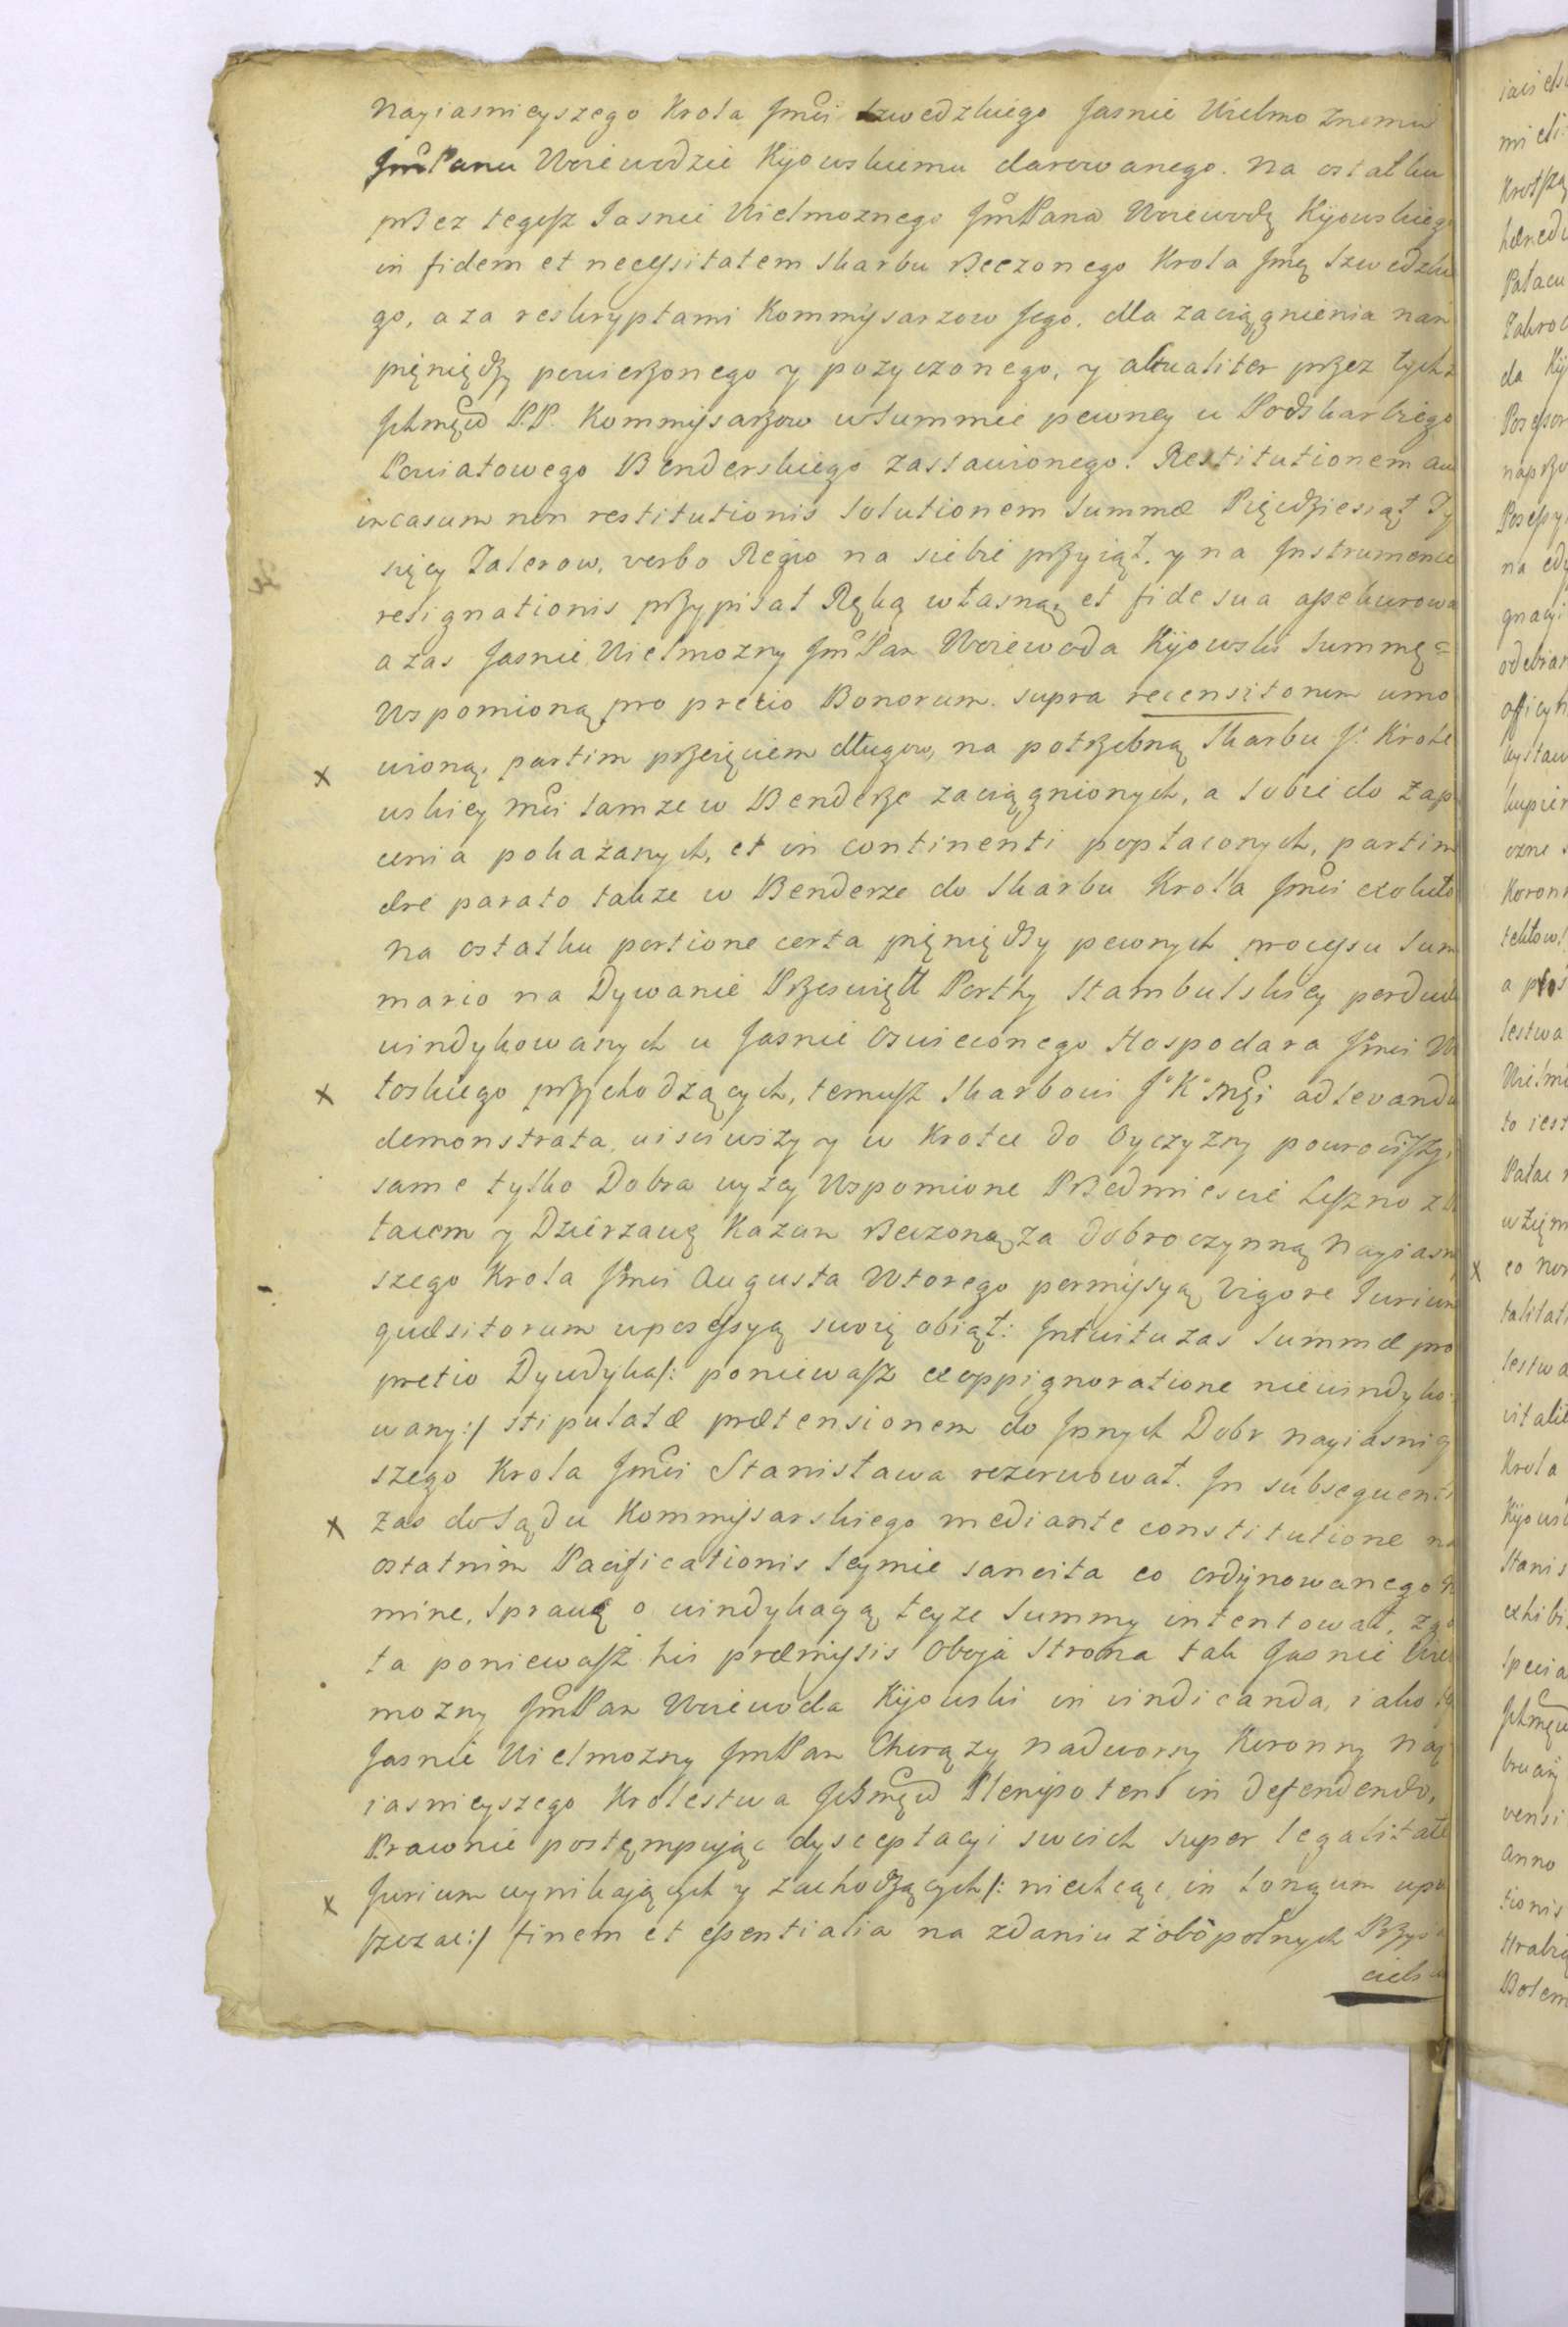 Nayiasnieyszego Krola Jmci Szwedzkiego Jasnie Wielmoznemu
JmPanu Woiewodzie Kijowskiemu darowanego. Na ostatku
przez tegosz Jasnie Wielmoznego JmPana Woiewodę Kijowskiego
in fidem et necessitatem Skarbu Rzeczonego Krola Jmę Szwedzkie
go, a za reskryptami Kommissarzow Jego, dla zaciągnienia nan
pięniędzy powierzonego y pozyczonego, y actualiter przez tychz
Jchmęciow P.P. Kommissarzow w Summie pewney u Podskarbiego
Powiatowego Benderskiego zastawionego. Restitutionem aut
in casum non restitutionis Solutionem Summæ Pięcdziesiąt Ty
sięcy Talerow, verbo Regio na siebie przyiął. y na Jnstrumencie
resignationis przypisał Ręką własną, et fide sua assekurował
a zas Jasnie Wielmozny JmPan Woiewoda Kijowski Summę=
Wspomioną pro pretio Bonorum supra recensitorum umo
wioną, partim przeięciem długow, na potrzebną Skarbu J. Krole
wskiey Mci tamze w Benderze zaciągnionych, a sobie do zapł
cenia pokazanych, et in continenti popłaconych, partim
ære parato takze w Benderze do Skarbu Krola Jmci
na ostatku portione certa pięniędzy pewnych processu Sum
mario na Dywanie Przeswięt Porthy Stambulskiey
windykowanych u Jasnie Oswieconego Hospodara Jmci Wo
łoskiego przychodzących, temusz Skarbowi J K Mci ad levanda
demonstrata uisciwszy y w Krotce do Oyczyzny powrociwszy,
same tylko Dobra wyzey Wspomione Przedmiescie Leszno z Pa
łacem y Dzierzawę Kazun Rzeczoną za dobroczynną Nayiasniey
szego Krola Jmci Augusta Wtorego permissyą Vigore Jurium
quæsitorum w possessyą swoię obiął: Jntuitu zas Summæ pro
pretio Dywdyka/: poniewasz ex oppignoratione niewindyko
wany:/ stipulatæ prætensionem do Jnnych Dobr Nayiasniey
szego Krola Jmci Stanisława rezerwował. Jn subsequenti
zas do Sądu Kommissarskiego mediante constitutione na
ostatnim Pacificationis Seymie sancita eo ordynowanego
mine, Sprawę o windykacyą teyze Summy intentował, zgo
ta poniewasz his præmissis Oboja Strona tak Jasnie Wiel
mozny JmPan Woiewoda Kijowski in vindicanda, iako
Jasnie Wielmozny JmPan Chorązy Nadworny Koronny Nay
iasnieyszego Krolestwa Jchmęciow Plenipotens in defendendo,
Prawnie postępując dysceptacyi swoich super legalitate
Jurium wynikających y zachodzących/: niechcąc in longum upu
szczac:/ finem et essentialia na zdaniu z obopolnych Przyia
ciels